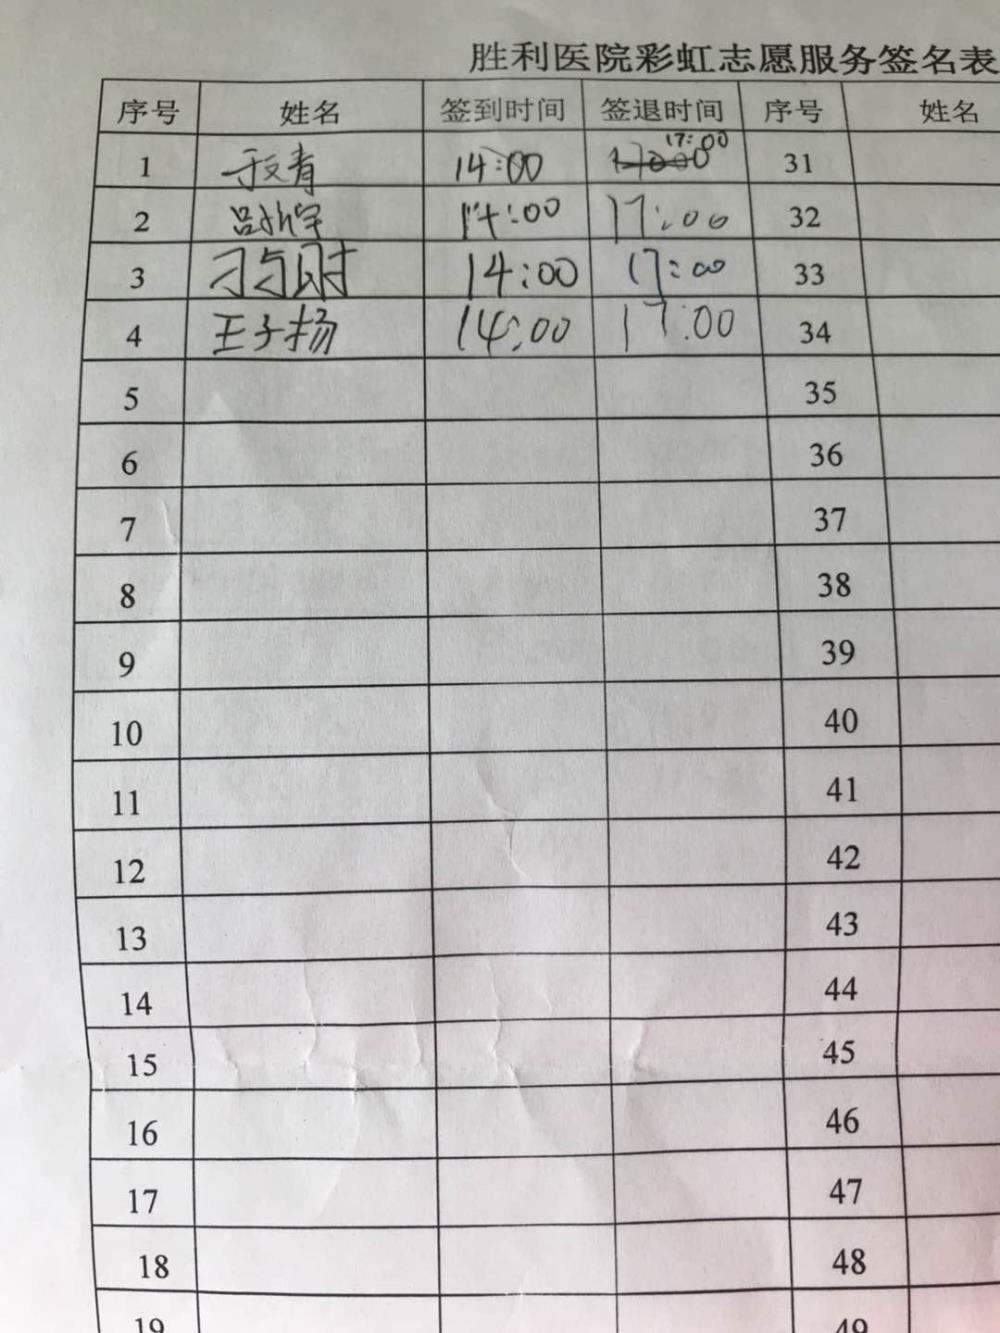 胜利医院彩虹志愿服务签名表
序号 姓名 签到时间 签退时间 序号 姓名
1 14:00 17:00 31
2 14:00 17:00 32
3 14:00 17:00 33
4 王子扬 14:00 17:00 34
5 35
6 36
7 37
8 38
9 39
10 40
11 41
12 42
13 43
14 44
15 45
16 46
17 47
18 48
19 49